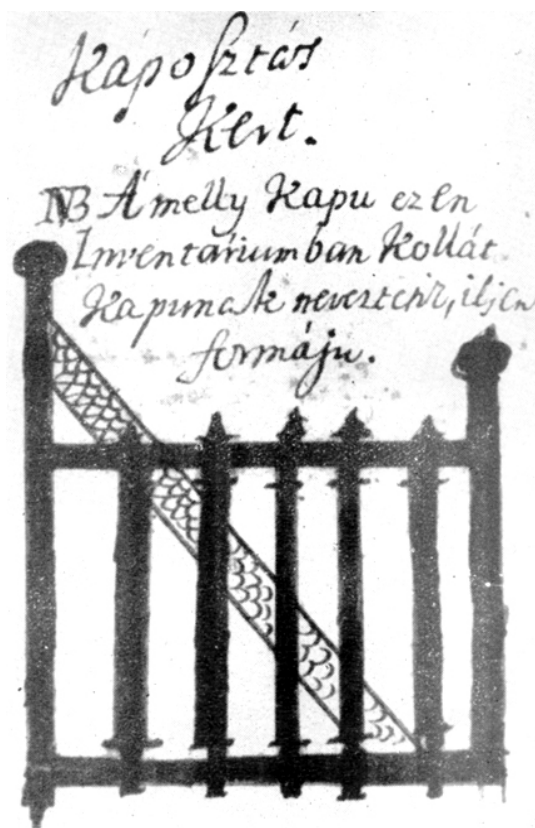 Káposztás
Kert.
NB A melly Kapu ezen
Inventáriumban Kollát
Kapunak neveztetik, iljen
formáju.